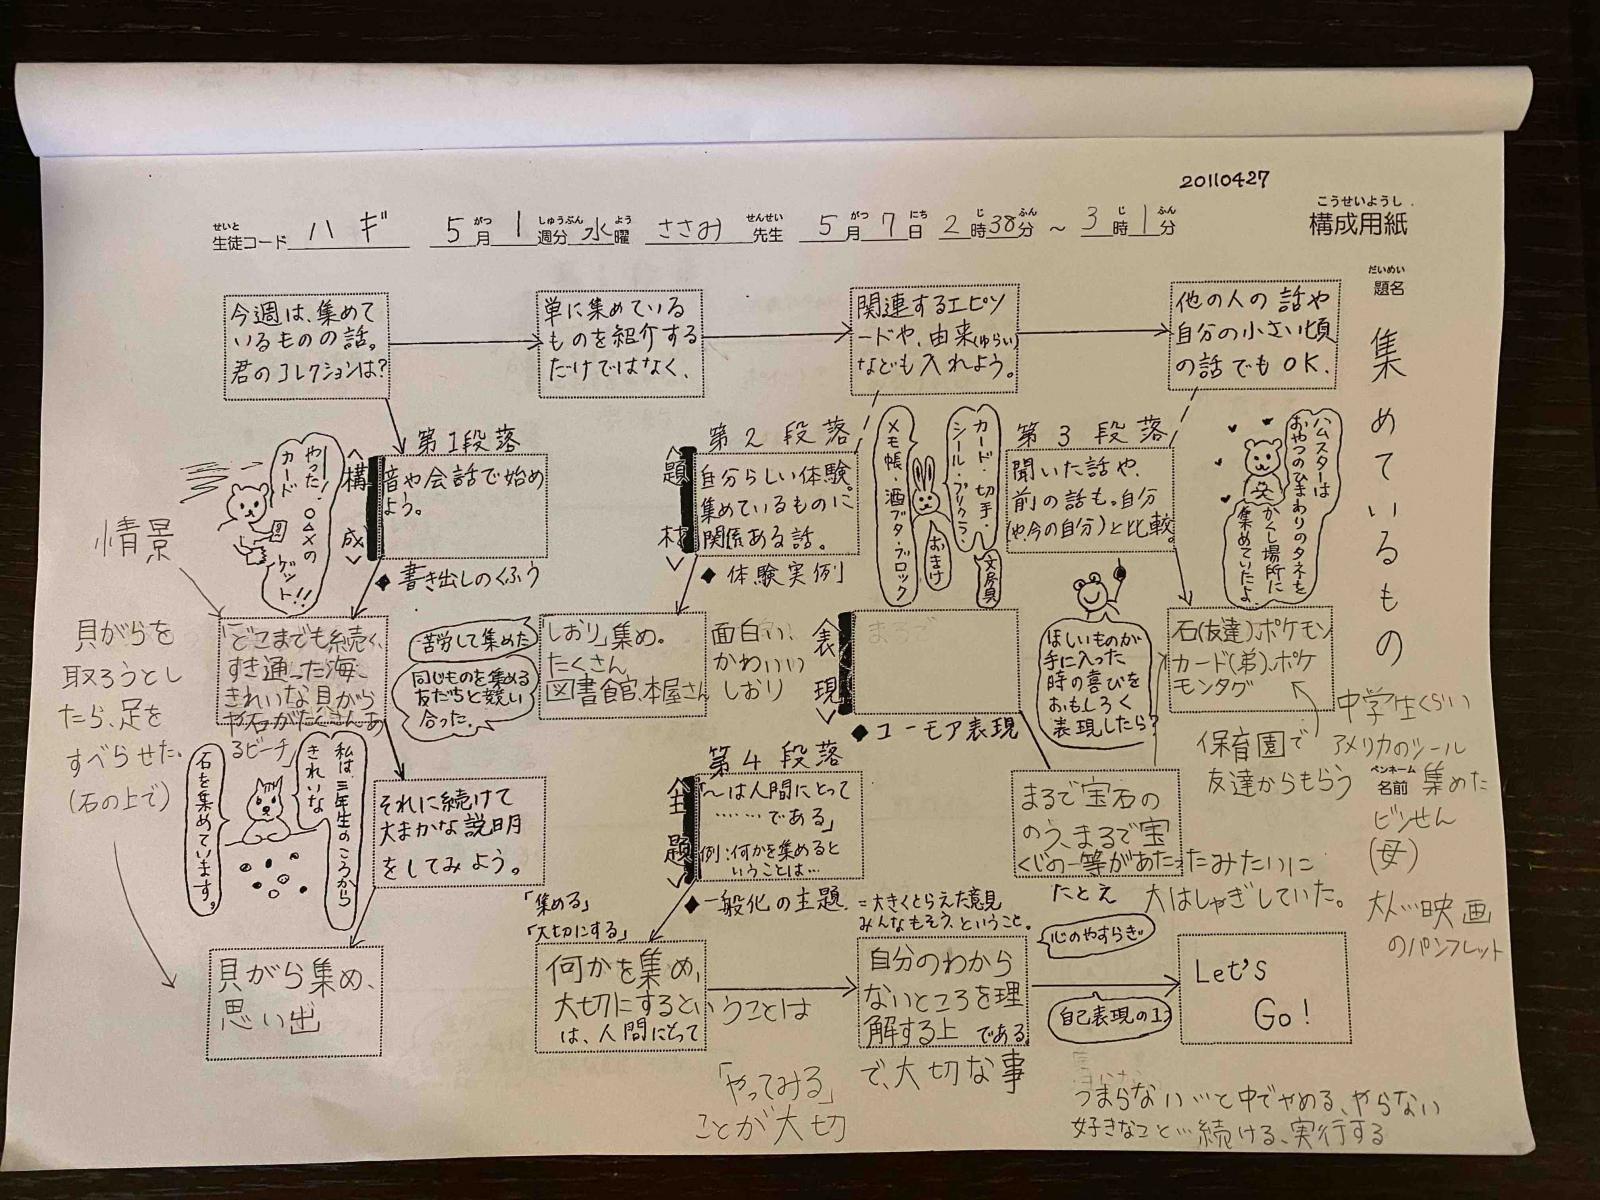 20110427
こうせいようし
構成用紙
せいと
生徒コード ハギ 5月 1週分 水曜 ささみ 先生 5月7日 2時38分 ～ 3時1分
がつ しゅうぶん よう せんせい がつ にち じ ふん じ ふん
だいめい
題名
集めているもの
今週は、集めて
いるものの話。
君のコレクションは?
単に集めている
ものを紹介する
だけではなく、
関連するエピソ
ードや、由来(ゆらい)
なども入れよう。
他の人の話や
自分の小さい頃
の話でもOK.
第1段落
<構成>
音や会話で始め
よう。
◆書き出しのくふう
やった!○△×の
カード
ゲット!!
第2段落
<題材>
自分らしい体験。
集めているものに
関係ある話。
◆体験実例
カード・切手・
シール・プリクラ・
メモ帳・酒ブタ・ブロック
おまけ
文房具
第3段落
聞いた話や、
前の話も。自分
(や今の自分)と比較。
ハムスターは
おやつのひまわりのタネを
かくし場所に
集めていたよ
情景
貝がらを
取ろうとし
たら、足を
すべらせた。
(石の上で)
「どこまでも続く、
すき通った海、
きれいな貝がら
や石がたくさんあ
るビーチ」
苦労して集めた
同じものを集める
友だちと競い
合った.
しおり集め。
たくさん
図書館、本屋さん
面白い、
かわいい
しおり
<表現>
まるで
◆ユーモア表現
ほしいものが
手に入った
時の喜びを
おもしろく
表現したら?
石(友達)、ポケモン
カード(弟)、ポケ
モンタグ
保育園で
友達からもらう
中学生くらい
アメリカのシール
ペンネーム
名前
集めた
ビンせん
(母)
大人…映画
のパンフレット
私は、三年生のころから
きれいな
石を集めています。
それに続けて
大まかな説明
をしてみよう。
第4段落
<主題>
「～は人間にとって
……である」
例:何かを集めると
いうことは…
◆一般化の主題.=大きくとらえた意見
みんなもそう、ということ。
まるで宝石の
のう、まるで宝
くじの一等があたったみたいに
たとえ
大はしゃぎしていた。
貝がら集め、
思い出
「集める」
「大切にする」
何かを集め、
大切にするということは
は、人間にとって
自分のわから
ないところを理
解する上 である。
で、大切な事
心のやすらぎ
自己表現の1つ
Let's
Go!
「やってみる」
ことが大切
つまらない…と中でやめる、やらない
好きなこと…続ける、実行する